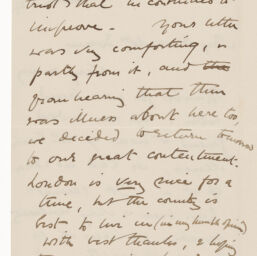 trust that he continues to
improve - Yours letter
was very comforting, &
partly from it, and the
from hearing that there
was illness about here too,
we decided to return tomorrow
to our great contentment.
London is very nice for a
time, but the country is
best to live in (in my humble opinion)
with best thanks, & hoping